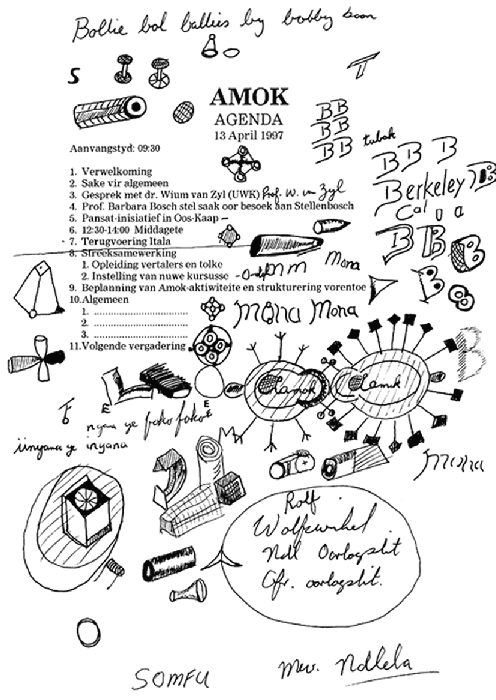 Bollie bol ballies by bobby boon
S
T
AMOK
AGENDA
13 April 1997
Aanvangstyd: 09:30
1. Verwelkoming
2. Sake vir algemeen
3. Gesprek met dr. Wium van Zyl (UWK) Prof. W. van Zyl
4. Prof. Barbara Bosch stel saak oor besoek aan Stellenbosch
5. Pansat-inisiatief in Oos-Kaap
6. 12:30-14:00 Middagete
7. Terugvoering Itala
8. Streeksamewerking
1. Opleiding vertalers en tolke
2. Instelling van nuwe kursusse
9. Beplanning van Amok-aktiwiteite en strukturering vorentoe
10. Algemeen
1. ..............................
2. ..............................
3. ..............................
11. Volgende vergadering
BB
BB
BB
tubak
B B B
Berkeley B
Cal
B B B
B
Mona
Mona Mona
B
amok
E
E
inyana ye inyana
Mona
Rolf
Wolfswinkel
Ndl Oorlogslit
Afr. oorlogslit.
SOMFU
Mev. Ndlela